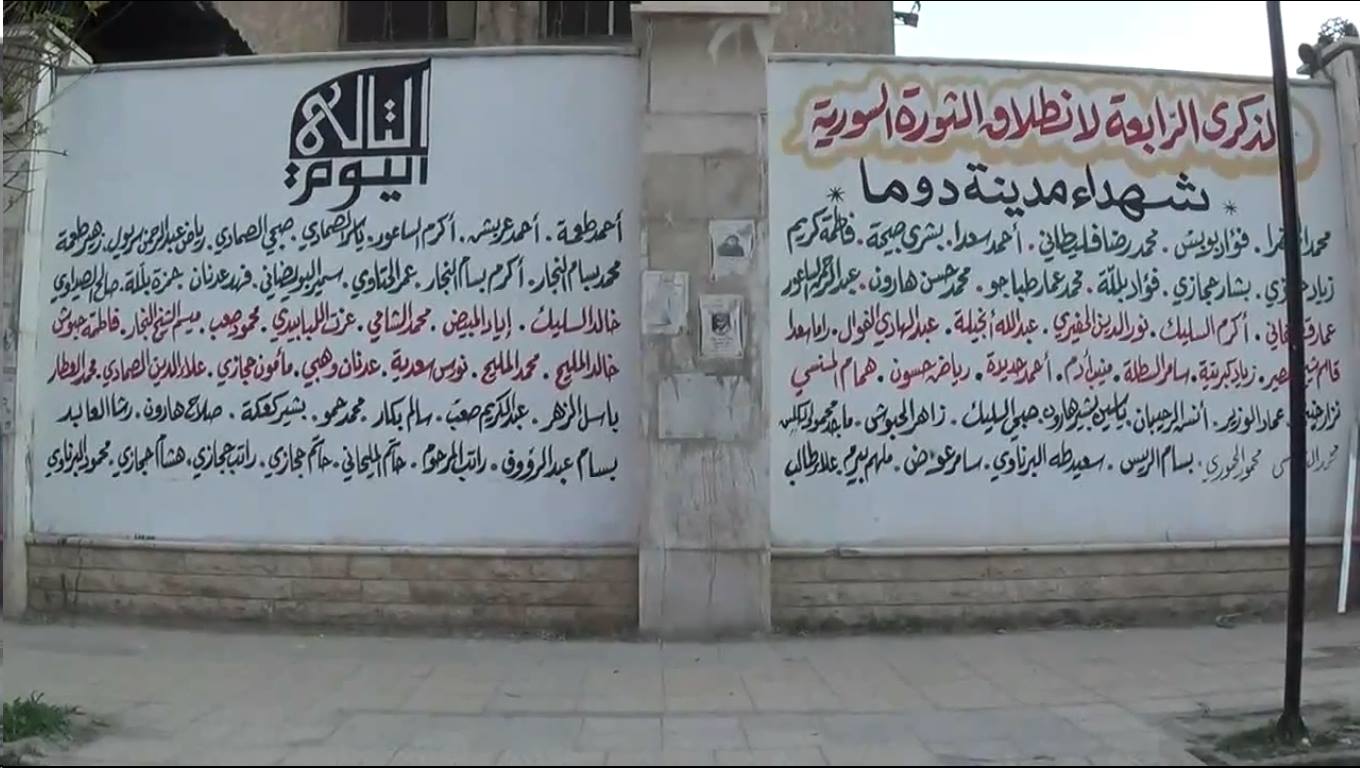 الذكرى الرابعة لانطلاق الثورة السورية
شهداء مدينة دوما
فؤاد بويش . محمد رضا فليطاني . أحمد سعدا . بشرى صبحة . فاطمة كريم
زياد حجازي . بشار حجازي . فؤاد بللة . محمد عمار طباجو . محمد حسن هارون . عبد الرحمن الساعور
عمار . أكرم السليك . نور الدين الحفيري . عبد الله أنخيلة . عبد الهادي الفوال . راما سعدا
قاسم . زياد كبريتة . سامر السطلة . منيب أدم . أحمد حديدة . رياض حسون . همام المنسي
نزار . عماد الوزير . أنس الرحيباني . ياسين بشير هارون . صبحي السليك . زاهر الحبوش . ماجد محمود
محمود الحوري . بسام الريس . سعيد طه البرناوي . سامر عوض . ملهم بيرم . علا طالب
اليوم
التالي
أحمد طعمة . أحمد عربش . أكرم الساعور . ياسر الصمادي . صبحي الصمادي . رياض عبد الرحمن سريول . زهير طعمة
محمد بسام النجار . أكرم بسام النجار . عمر الحتاوي . سمير البويضاني . فهد عدنان حمزة بللة . صالح الصيداوي
خالد السليك . إياد المبيض . محمد الشامي . عزت اللبابيدي . محمود صعب . ميسم الشيخ النجار . فاطمة حبوش
خالد المليح . محمد المليح . نورس سعدية . عدنان وهبي . مأمون حجازي . علاء الدين الصمادي . محمد العطار
باسل الزهر . عبد الكريم صعب . سالم بكار . محمد حمو . بشير كعكة . صلاح هارون . رشا العابد
بسام عبد الرؤوف . راتب المرحوم . حاتم المليحاني . حاتم حجازي . راتب حجازي . هشام حجازي . محمود البرناوي